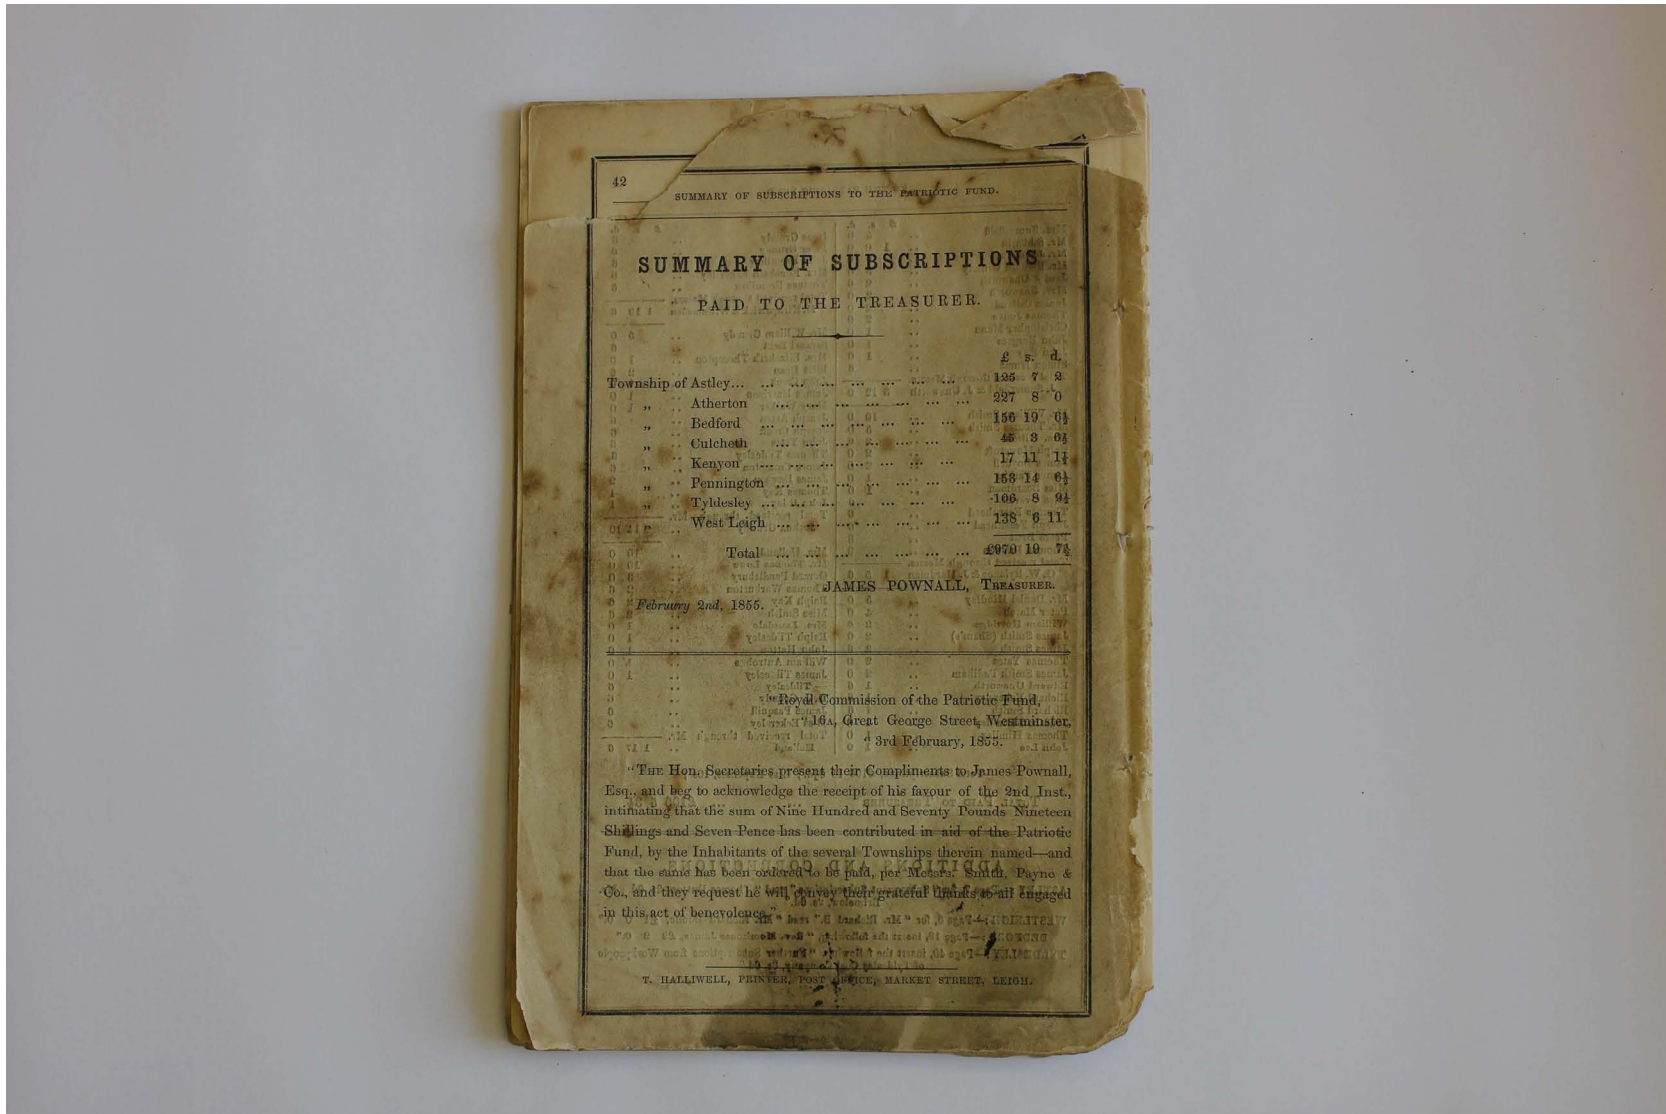 42
SUMMARY OF SUBSCRIPTIONS TO THE PATRIOTIC FUND.
SUMMARY OF SUBSCRIPTIONS
PAID TO THE TREASURER.
£ s. d.
Township of Astley... ... ... ... ... ... ... ... 125 7 2
„ Atherton ... ... ... ... ... ... ... 227 8 0
„ Bedford ... ... ... ... ... ... ... 156 19 6½
„ Culcheth ... ... ... ... ... ... ... 45 3 6½
„ Kenyon ... ... ... ... ... ... ... 17 11 1½
„ Pennington ... ... ... ... ... ... ... 153 14 6½
„ Tyldesley ... ... ... ... ... ... ... 106 8 9½
„ West Leigh ... ... ... ... ... ... ... 138 6 11
Total ... ... ... ... ... ... ... £970 19 7½
JAMES POWNALL, TREASURER.
February 2nd, 1855.
"Royal Commission of the Patriotic Fund,
"16A, Great George Street, Westminster,
"3rd February, 1855.
"THE Hon. Secretaries present their Compliments to James Pownall,
Esq., and beg to acknowledge the receipt of his favour of the 2nd Inst.,
intimating that the sum of Nine Hundred and Seventy Pounds Nineteen
Shillings and Seven Pence has been contributed in aid of the Patriotic
Fund, by the Inhabitants of the several Townships therein named—and
that the same has been ordered to be paid, per Messrs. Smith, Payne &
Co., and they request he will convey their grateful thanks to all engaged
in this act of benevolence."
T. HALLIWELL, PRINTER, POST OFFICE, MARKET STREET, LEIGH.